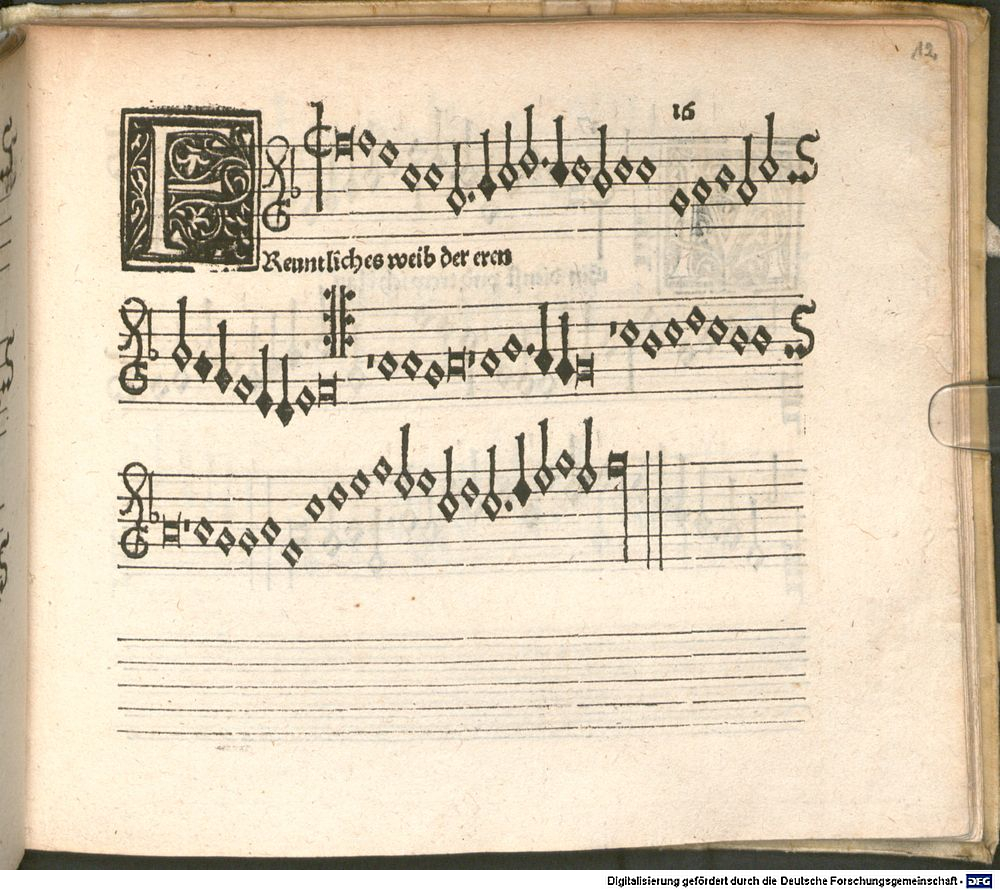 12
16
F
Reuntliches weib der eren
Digitalisierung gefördert durch die Deutsche Forschungsgemeinschaft - DFG